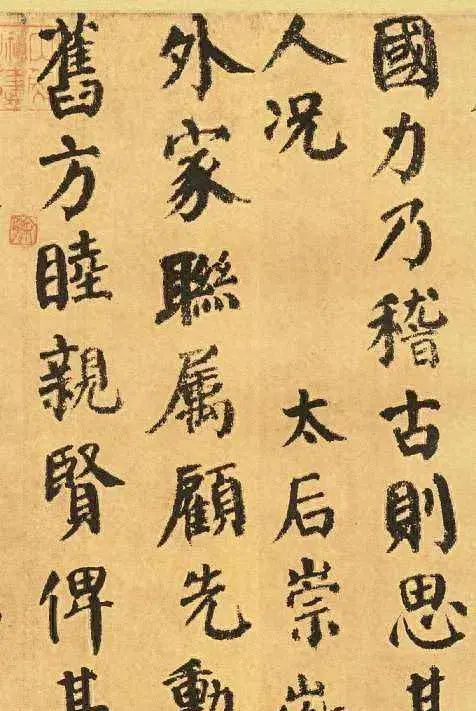 國力乃稽古則思其
人况 太后崇
外家聯属顧先勲
舊方睦親賢俾其